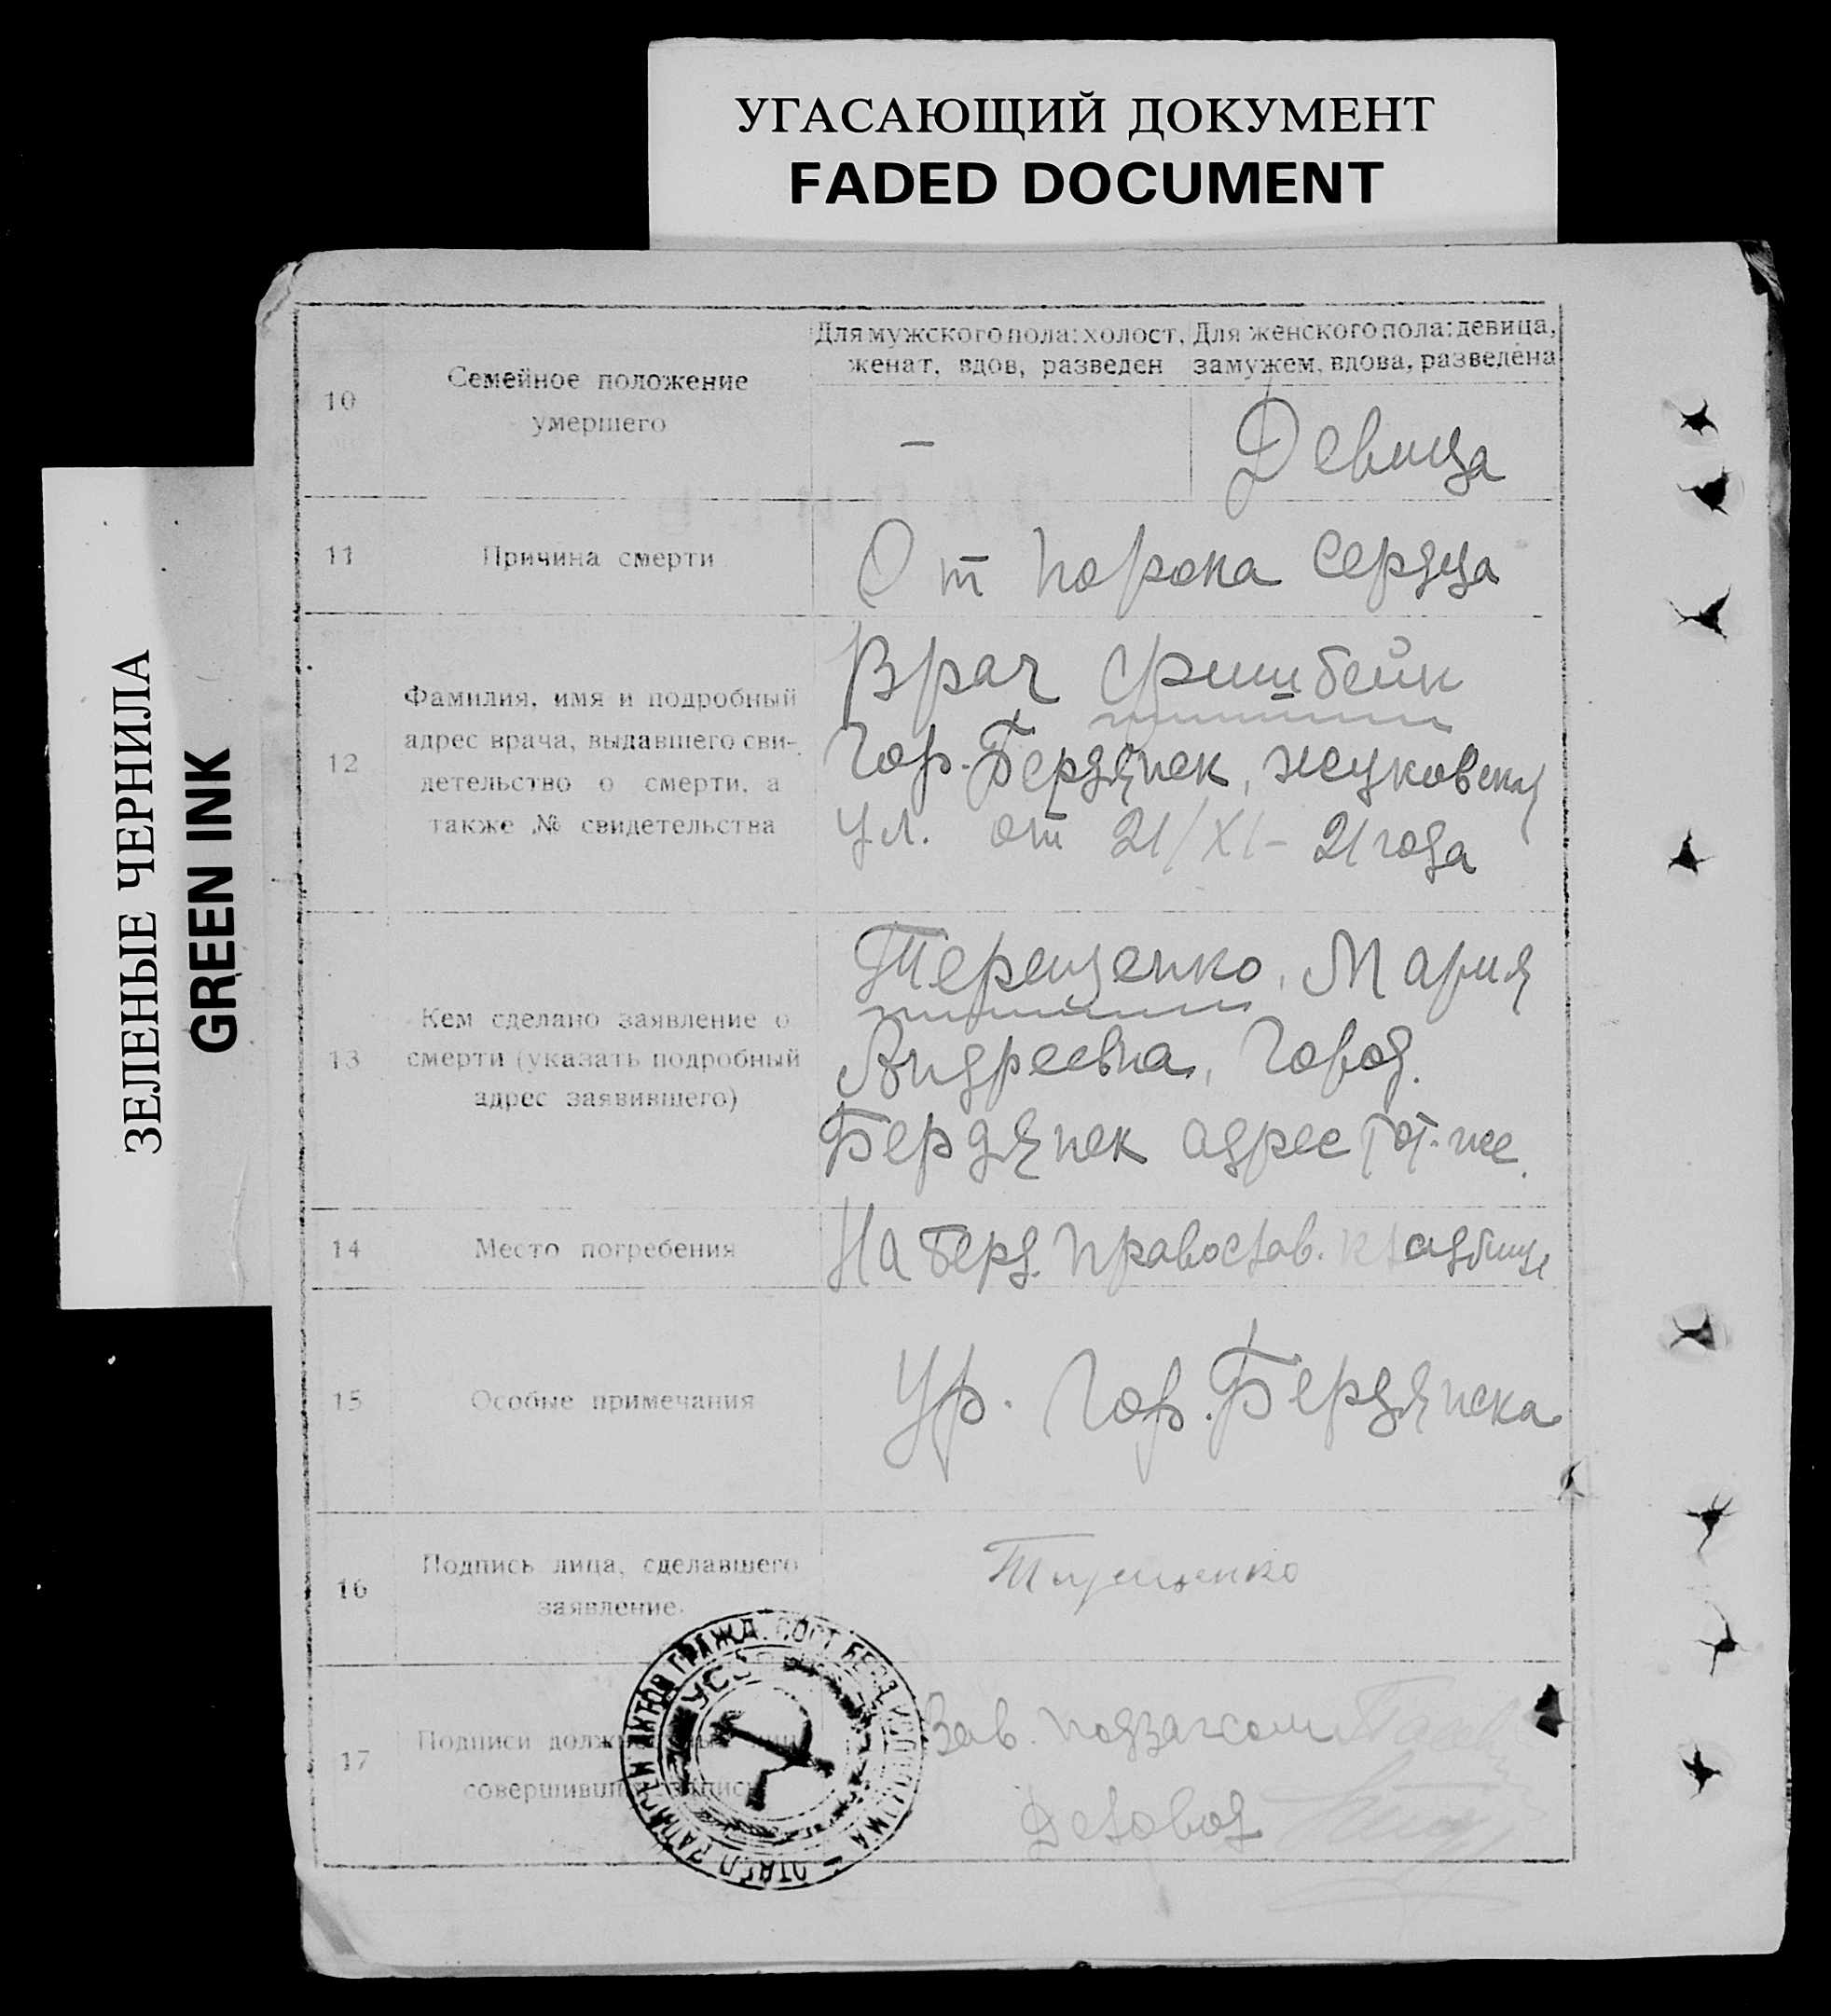 УГАСАЮЩИЙ ДОКУМЕНТ
FADED DOCUMENT
ЗЕЛЕНЫЕ ЧЕРНИЛА
GREEN INK
Для мужского пола: холост,
женат, вдов, разведен
Для женского пола: девица,
замужем, вдова, разведена
10
Семейное положение
умершего
—
Девица
11
Причина смерти
От порока сердца
12
Фамилия, имя и подробный
адрес врача, выдавшего сви-
детельство о смерти, а
также № свидетельства
Врач Фришбейн
Гор. Бердянск, Жуковская
ул. от 21/XI – 21 года
13
Кем сделано заявление о
смерти (указать подробный
адрес заявившего)
Терещенко, Мария
Андреевна, Город.
Бердянск адрес тот-же.
14
Место погребения
На Берд. Православ. кладбище
15
Особые примечания
Ур. Гор. Бердянска
16
Подпись лица, сделавшего
заявление.
Терещенко
17
Подписи должностных лиц,
совершивших запись
Зав. подзагсом
Деловод
ОТДЕЛ ЗАПИСИ АКТОВ ГРАЖД. СОСТ. БЕРД.
УССР